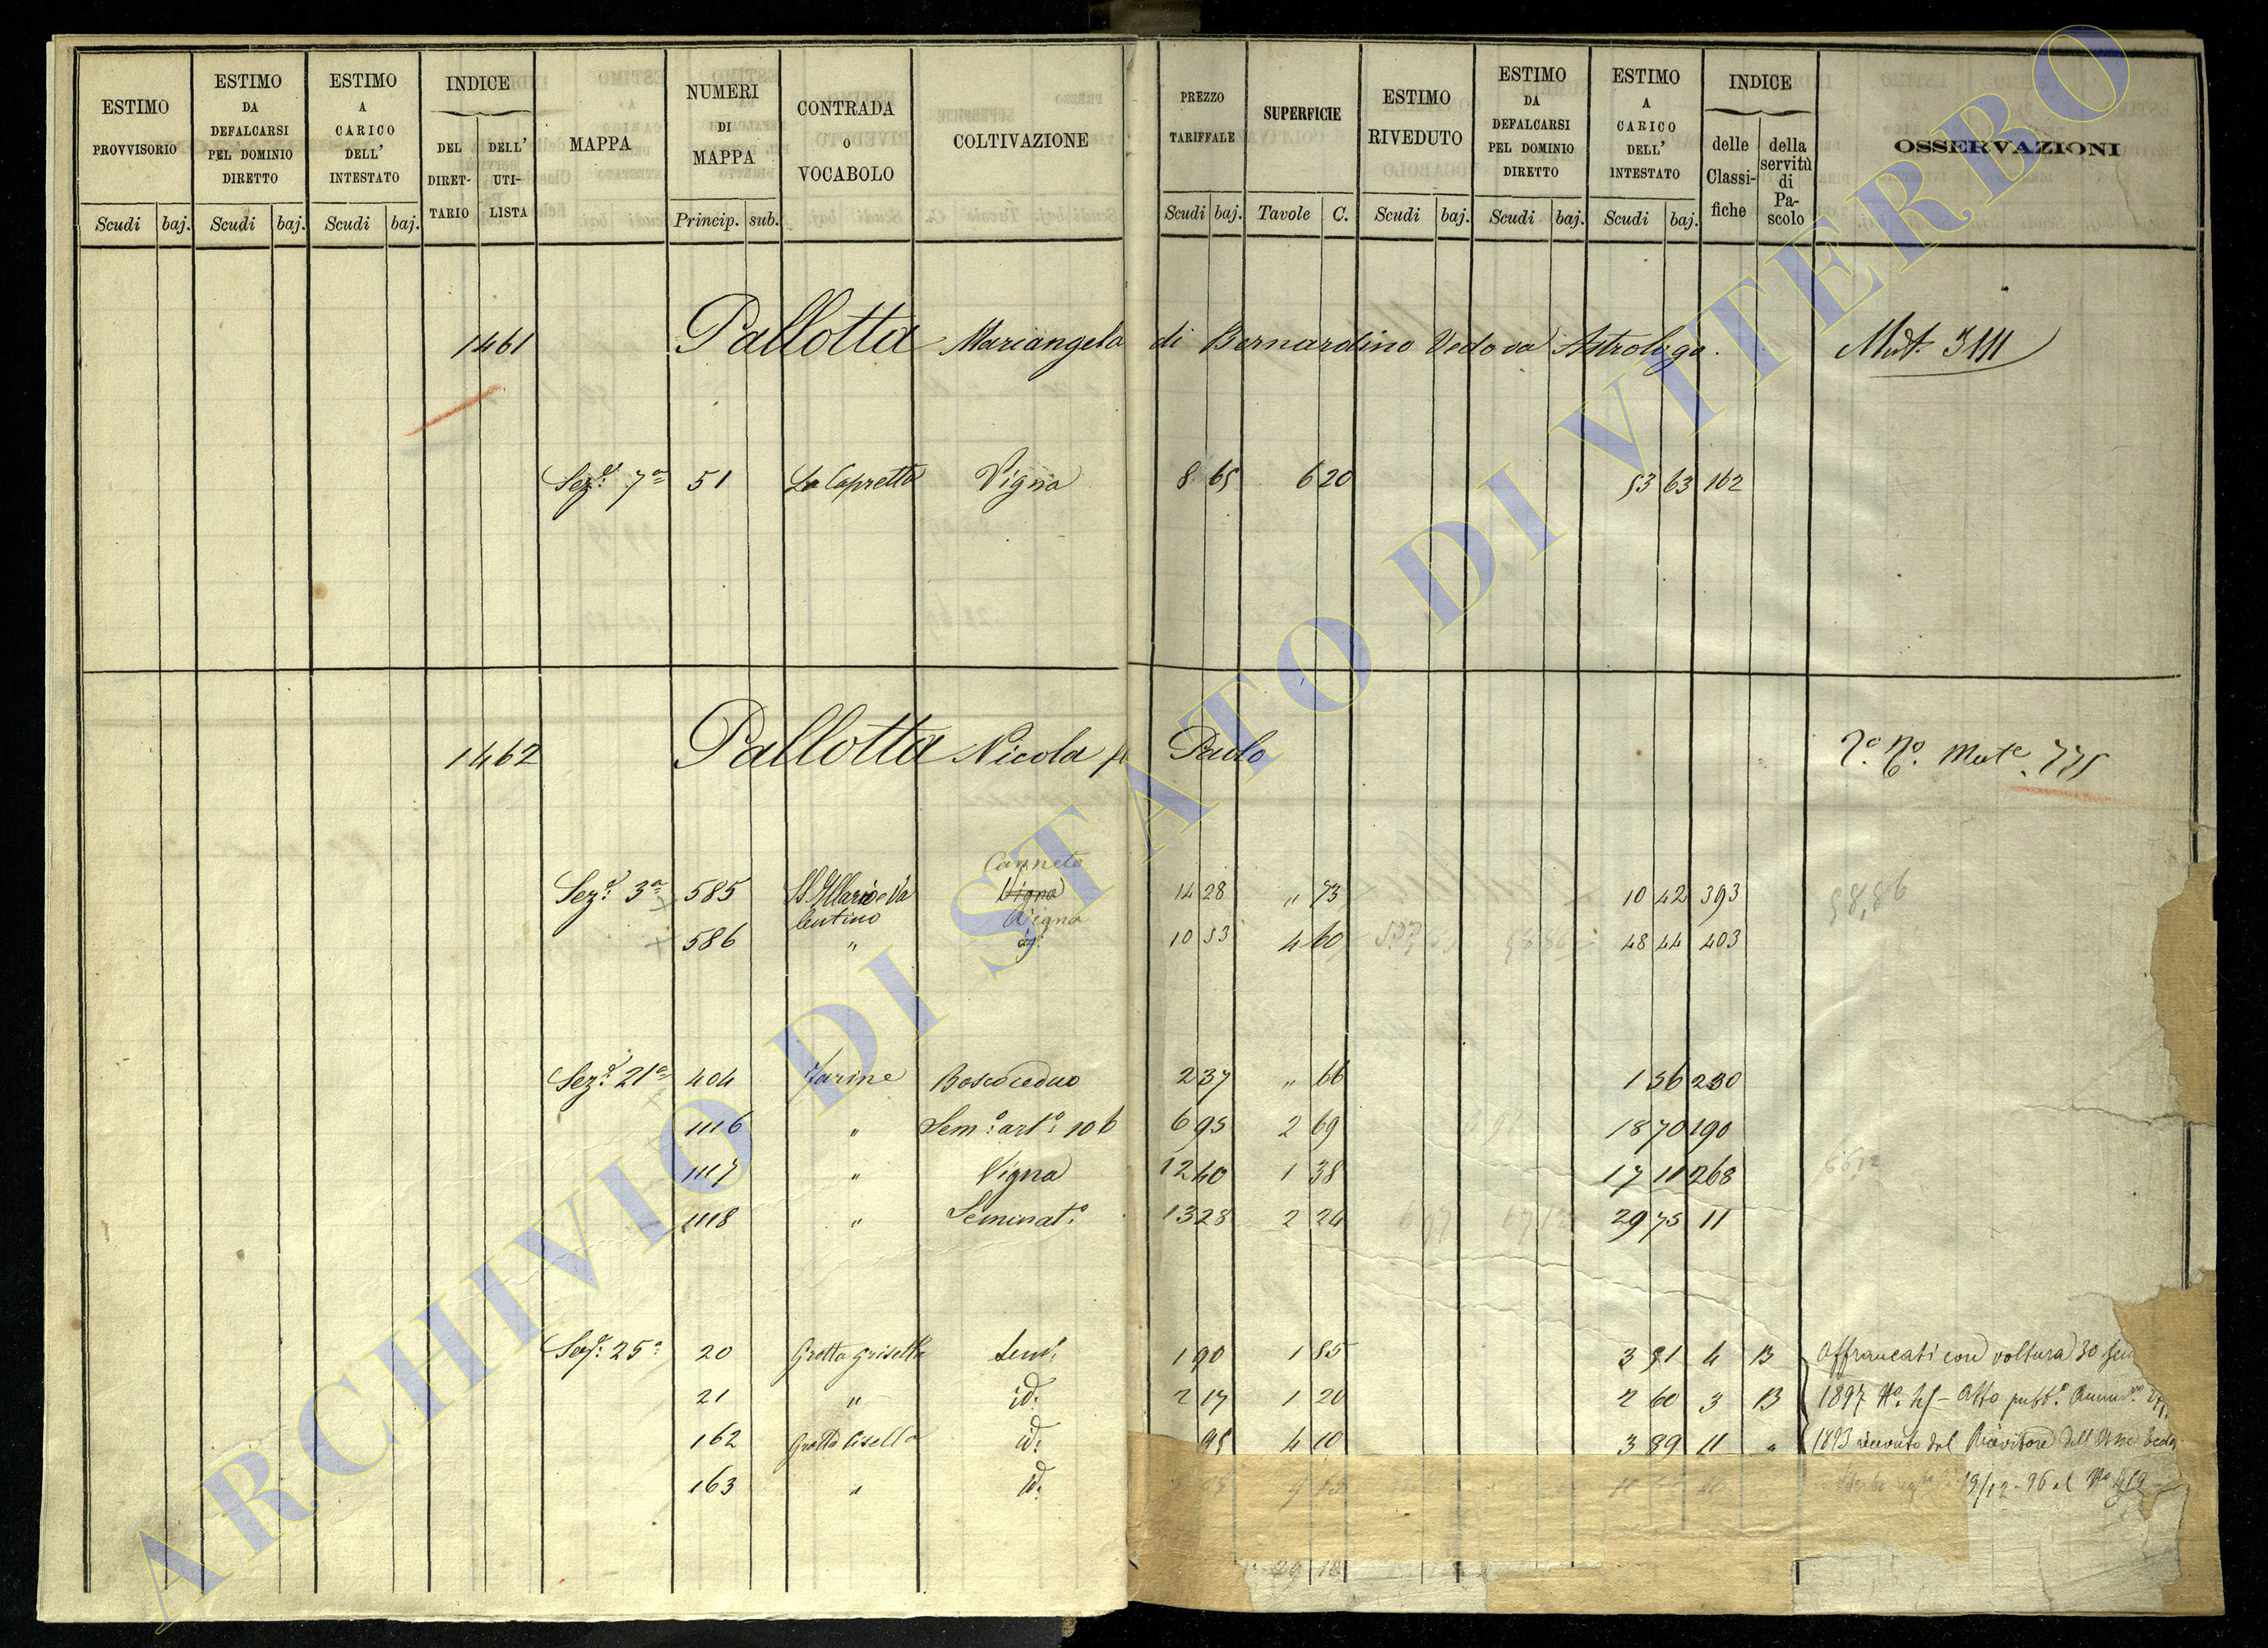 ESTIMO PROVVISORIO
Scudi baj.
ESTIMO DA DEFALCARSI PEL DOMINIO DIRETTO
Scudi baj.
ESTIMO A CARICO DELL' INTESTATO
Scudi baj.
INDICE
DEL DIRET- TARIO
DELL' UTI- LISTA
MAPPA
NUMERI DI MAPPA
Princip. sub.
CONTRADA o VOCABOLO
COLTIVAZIONE
PREZZO TARIFFALE
Scudi baj.
SUPERFICIE
Tavole C.
ESTIMO RIVEDUTO
Scudi baj.
ESTIMO DA DEFALCARSI PEL DOMINIO DIRETTO
Scudi baj.
ESTIMO A CARICO DELL' INTESTATO
Scudi baj.
INDICE
delle Classi- fiche
della servitù di Pa- scolo
OSSERVAZIONI
1461 Pallotta Mariangela di Bernardino Vedova Astrologo. Mut. 3111
Sez.e 7a 51 La Capretta Vigna 8 65 6 20 53 63 162
1462 Pallotta Nicola fu Paolo Mut.e 775
Canneto
Sez.e 3a 585 SS Illario e Va 14 28 " 73 10 42 393 58,86
lentino Vigna
586 " 10 53 4 60 48 44 403
Sez.e 21a 404 Zarine Bosco ceduo 2 37 " 66 1 56 230
1116 " Sem.o art.o 106 6 95 2 69 18 70 190
1117 " Vigna 12 40 1 38 17 11 268 6612
1118 " Seminat.o 13 28 2 24 29 75 11
Sez.e 25a 20 Grotta Grisella Sem.o 1 90 1 85 3 51 4 B Affrancati con voltura 30
21 " id. 2 17 1 20 2 60 3 B 1897 No. 45 - Atto pubb.o
162 Grotta Cisella id. 95 4 10 3 89 11 " 1893 ricevuto dal Ricevitore dell
163 " id. 19/12-96 al No 419
29 18
ARCHIVIO DI STATO DI VITERBO